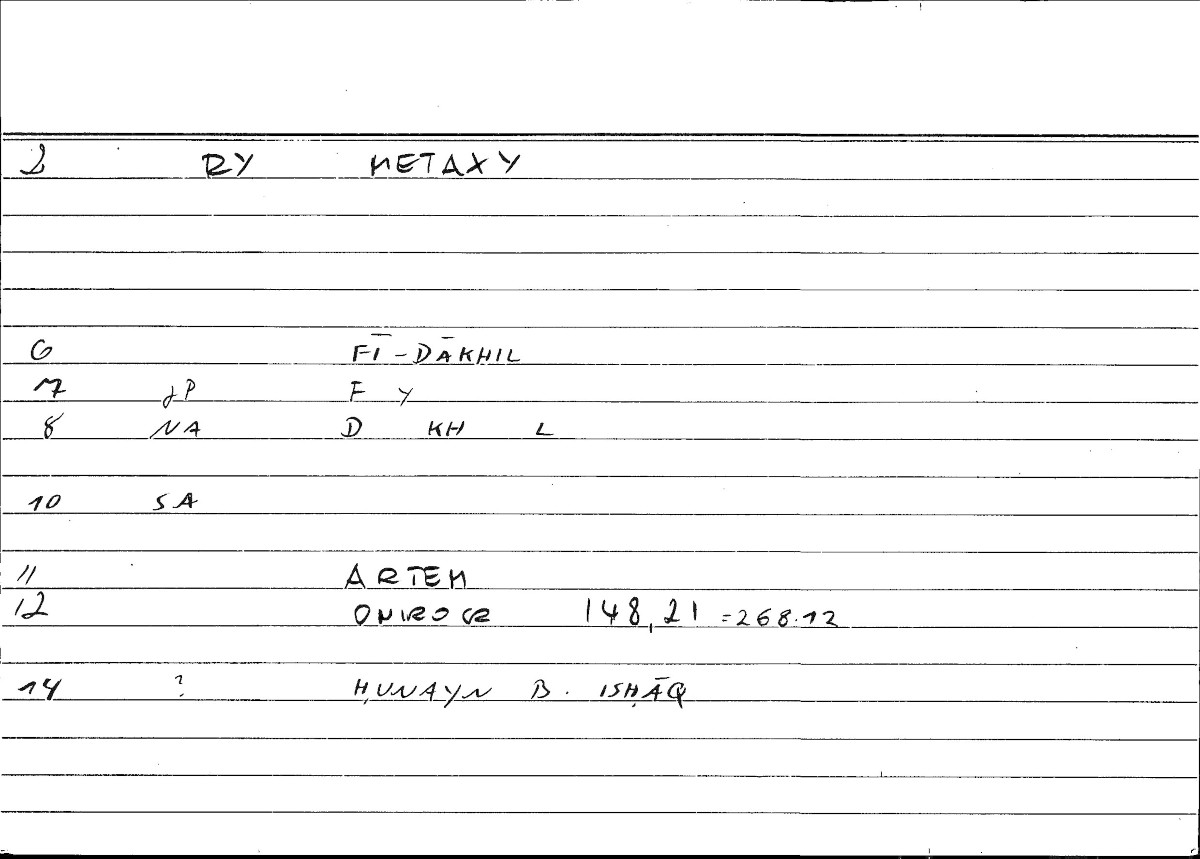 2 RY METAXY
6 FĪ-DĀKHIL
7 JP F Y
8 NA D KH L
10 SA
11 ARTEM
12 ONIROCR 148,21 =268.12
14 ? ḤUNAYN B. ISḤĀQ